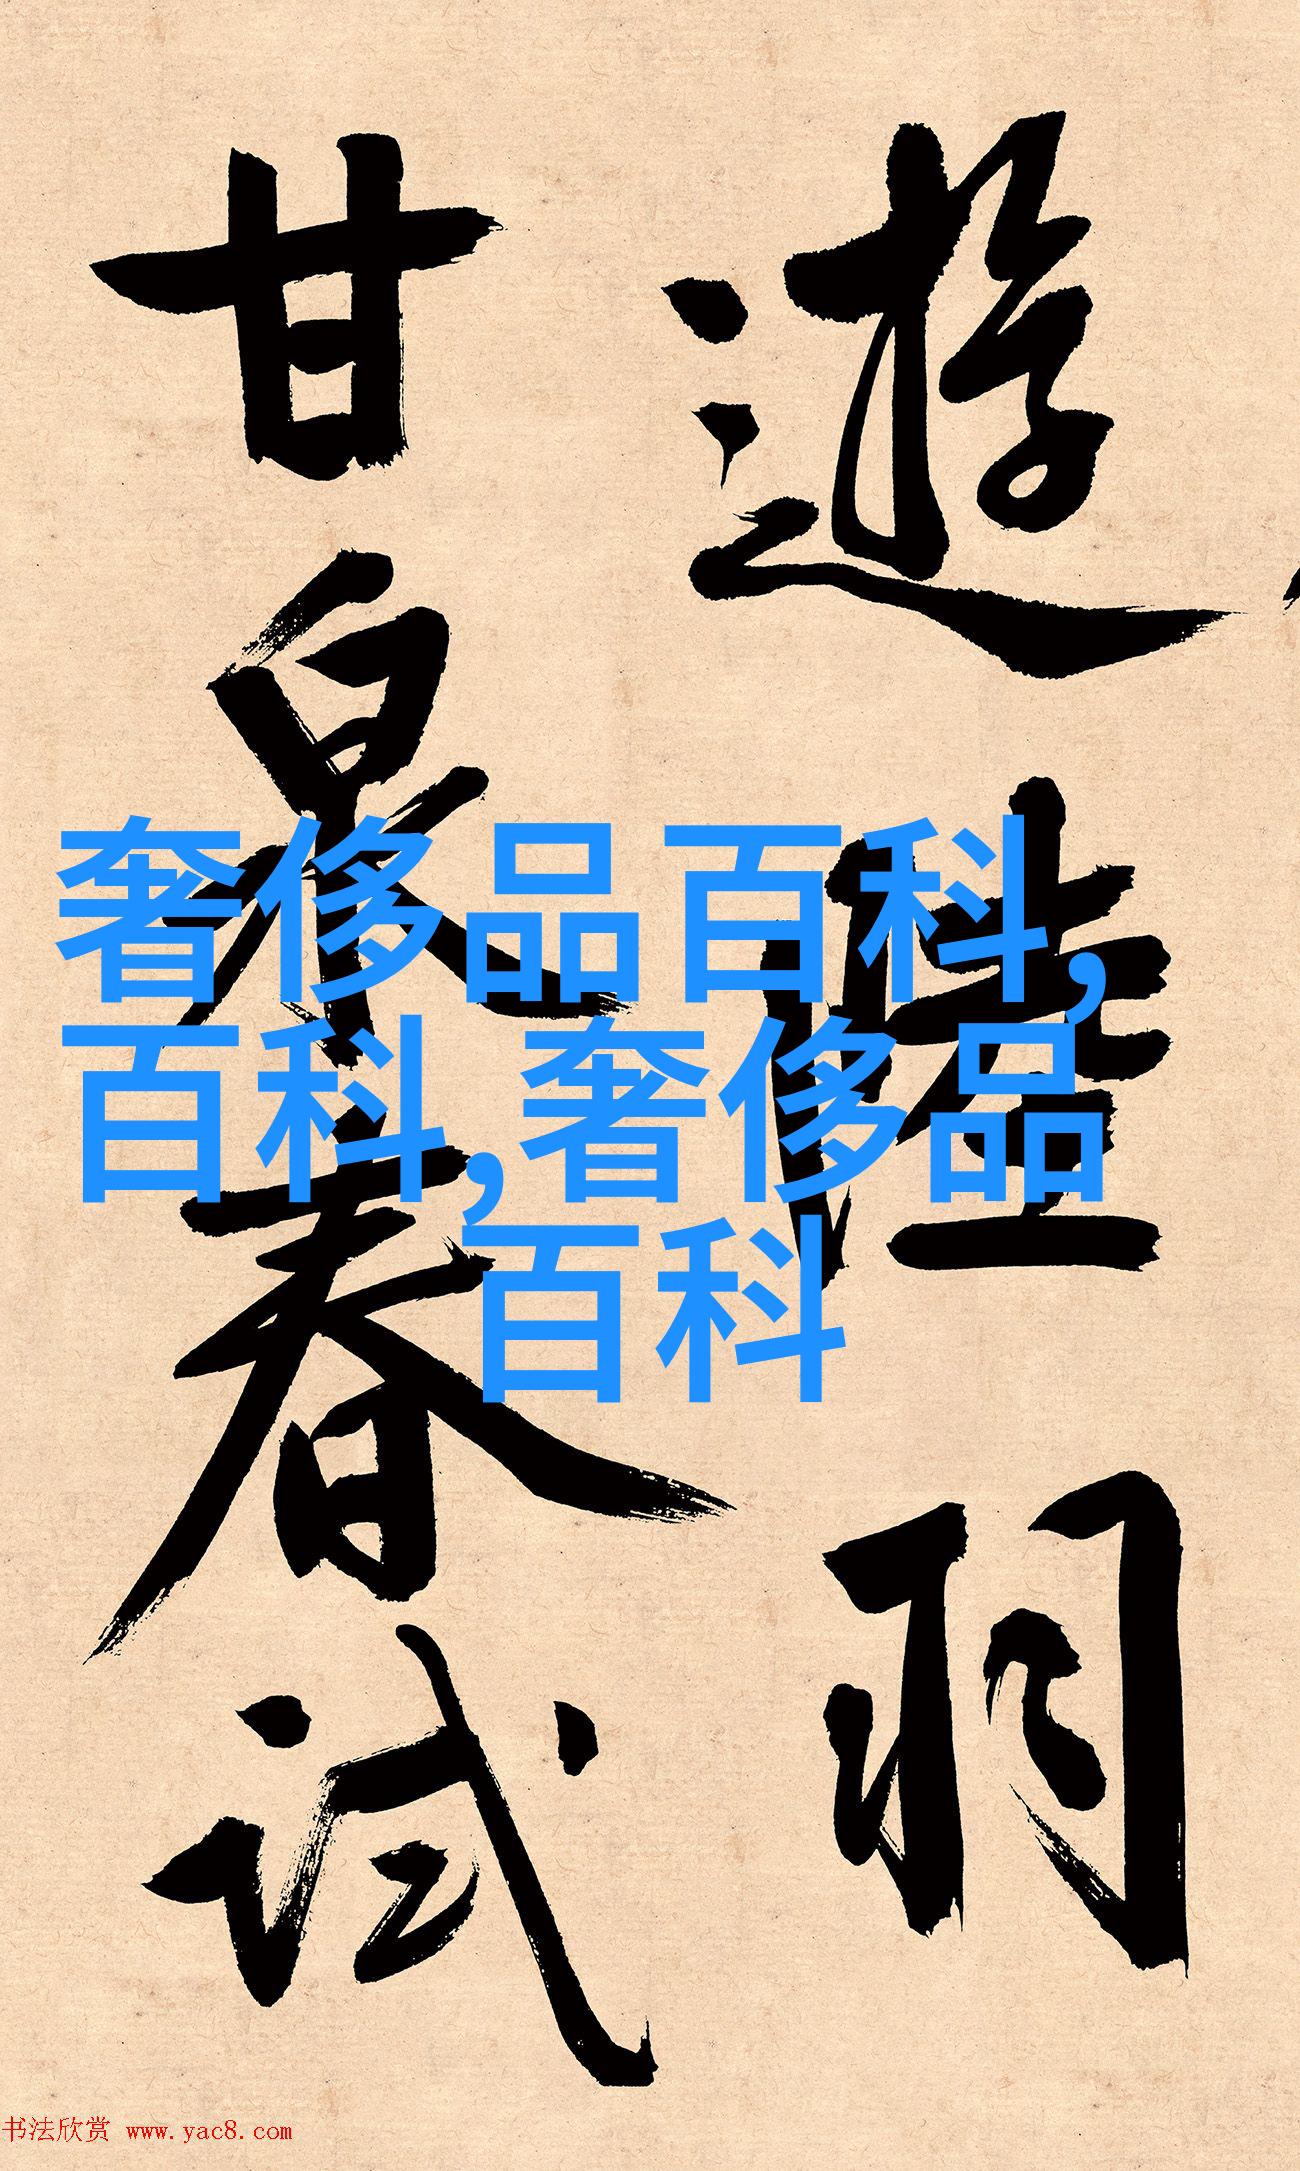 遊陸羽
甘泉春試
奢侈品百科,
百科,奢侈品
百科
书法欣赏 www.yac8.com